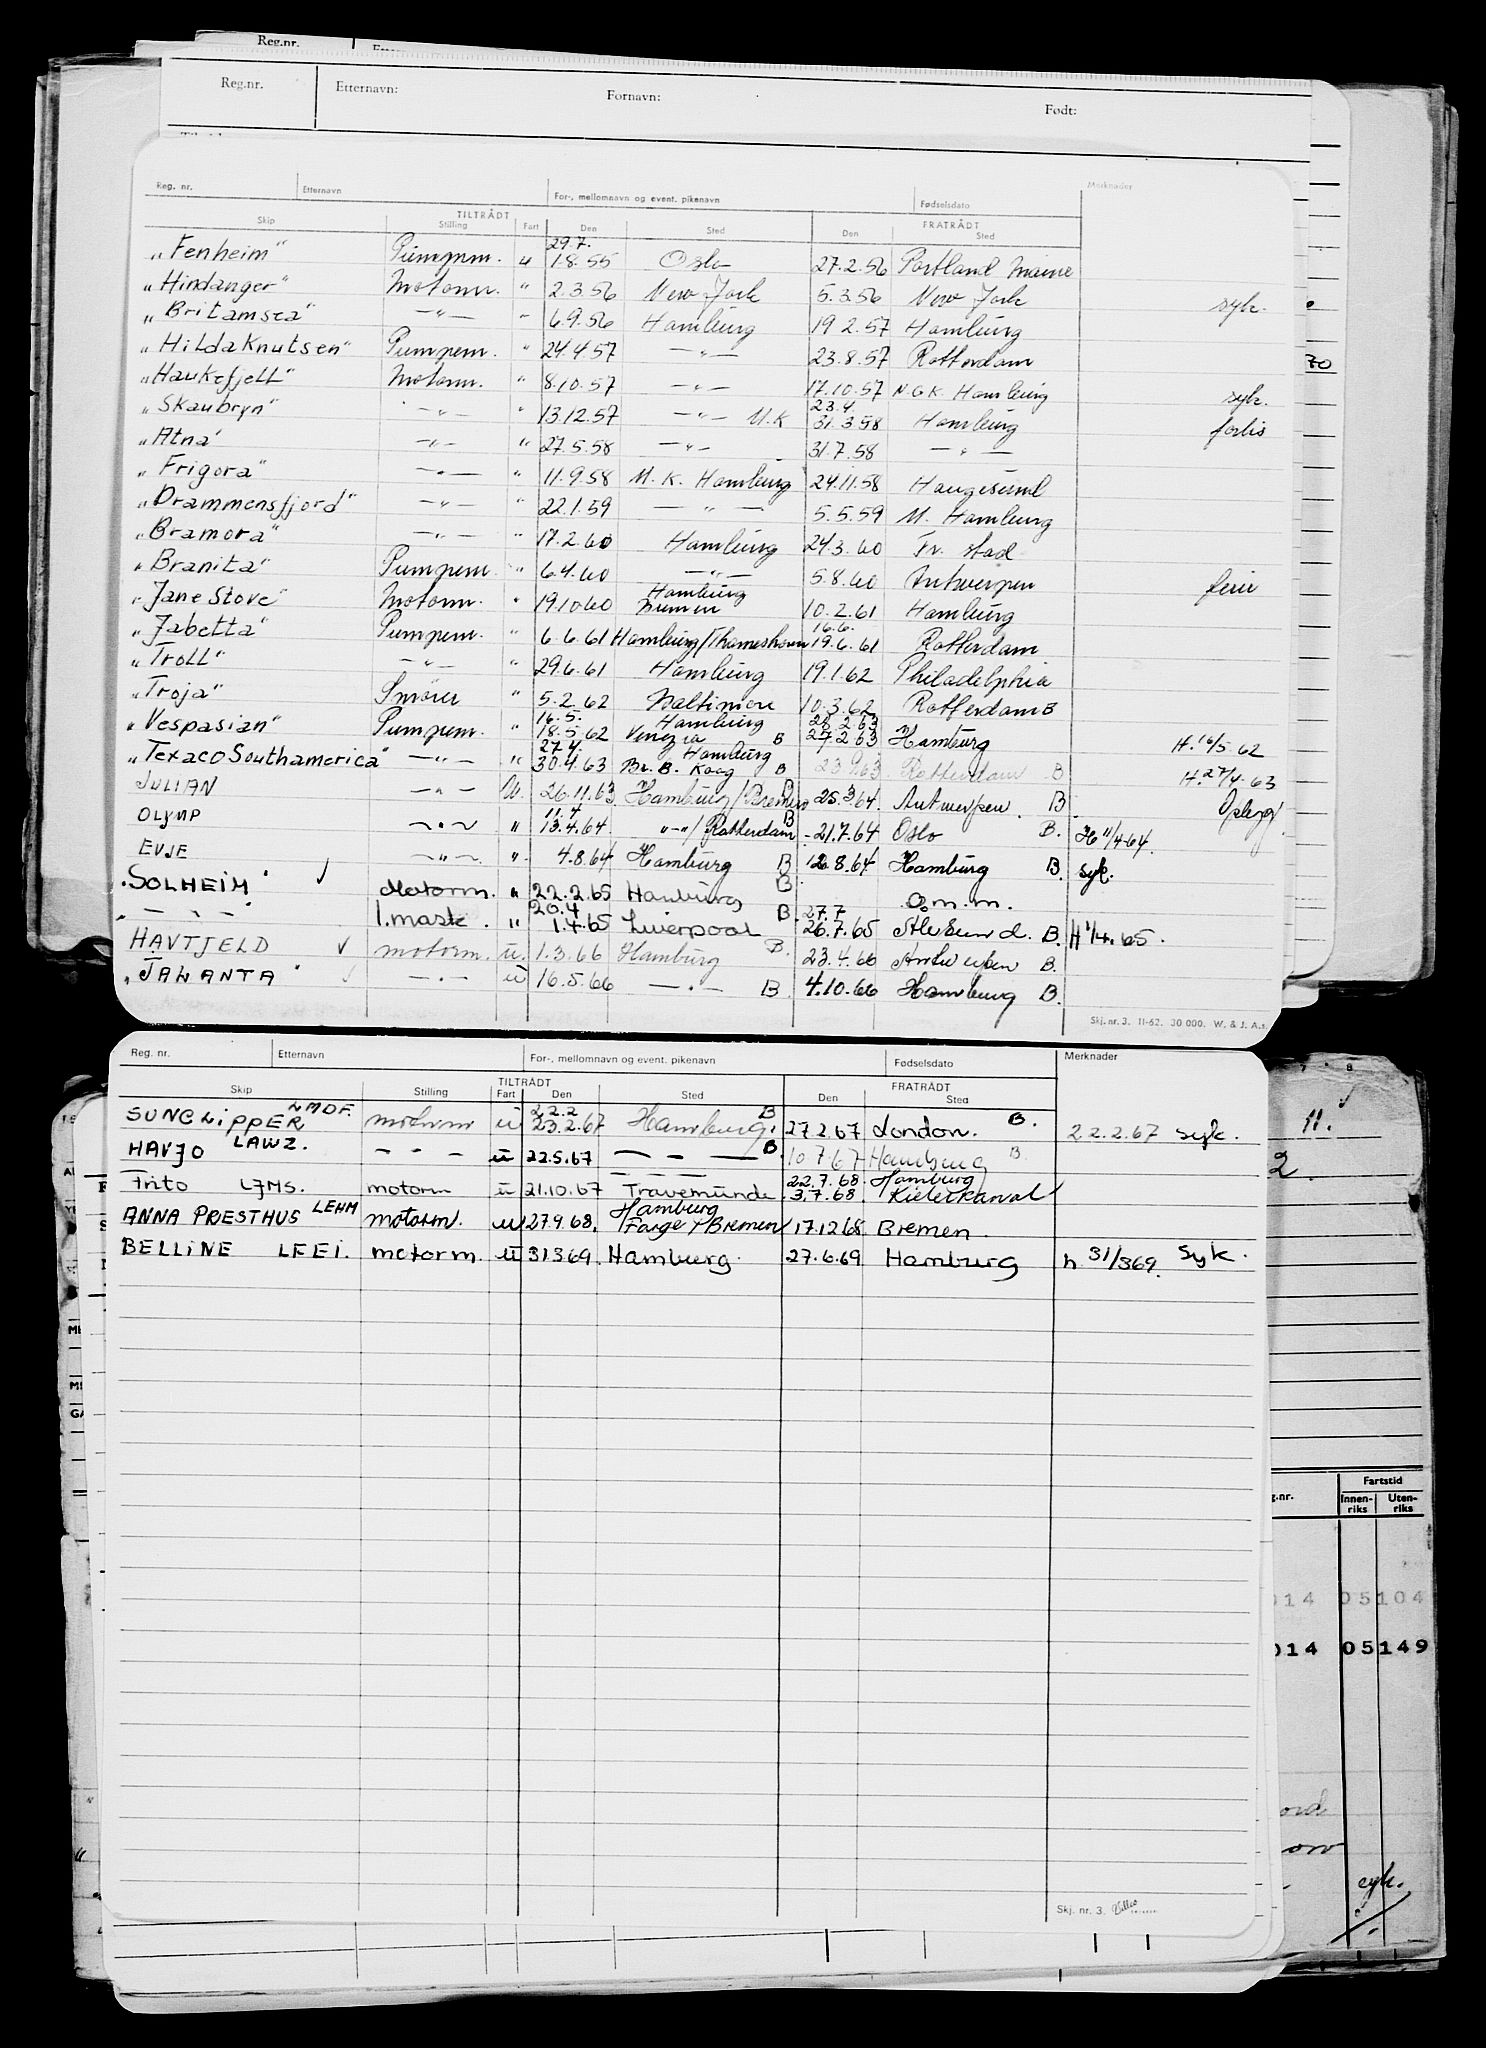 Reg.nr. Ett
Reg.nr. Etternavn: Fornavn: Født:
Reg. nr. Etternavn For-, mellomnavn og event. pikenavn Fødselsdato Merknader
Skip TILTRÅDT FRATRÅDT
Stilling Fart Den Sted Den Sted
29.7.
"Fenheim" Pumpm. u 1.8.55 Oslo 27.2.56 Portland Maine
"Hindanger" Motorm. " 2.3.56 New York 5.3.56 New York syk.
"Britamsea" —"— " 6.9.56 Hamburg 19.2.57 Hamburg
"Hilda Knutsen" Pumpem. " 24.4.57 —"— 23.8.57 Rotterdam
"Haukefjell" Motorm. " 8.10.57 —"— 17.10.57 N.G.K. Hamburg syk.
23.4
"Skaubryn" —"— " 13.12.57 —"— M.K 31.3.58 Hamburg forlis
"Atna" —"— " 27.5.58 —"— 31.7.58 —"—
"Frigora" —"— " 11.9.58 M.K. Hamburg 24.11.58 Haugesund
"Drammensfjord" —"— " 22.1.59 —"— 5.5.59 M. Hamburg
"Bramora" —"— " 17.2.60 Hamburg 24.3.60 Fr. stad
"Branita" Pumpem. " 6.4.60 —"— 5.8.60 Antwerpen ferie
Hamburg
"Jane Stove" Motorm. " 19.10.60 Bremen 10.2.61 Hamburg
16.6.
"Jabetta" Pumpem. " 6.6.61 Hamburg/Thameshaven 19.6.61 Rotterdam
"Troll" —"— " 29.6.61 Hamburg 19.1.62 Philadelphia
"Troja" Smører " 5.2.62 Baltimore 10.3.62 Rotterdam B
16.5. Hamburg 28.2.63
"Vespasian" Pumpem. " 18.5.62 Venezia B 27.2.63 Hamburg H.16/5 62
27.4. Hamburg
"Texaco Southamerica" —"— " 30.4.63 Br. B. Koog B 23.9.63 Rotterdam B H.27/4.63
JULIAN —"— U. 26.11.63 Hamburg/Bremen B 25.3.64. Antwerpen B Oplegg
11.4
OLYMP —"— " 13.4.64 "—"/Rotterdam B 21.7.64 Oslo B. H 11/4-64.
EVJE —"— " 4.8.64 Hamburg B 12.8.64 Hamburg B. syk.
"SOLHEIM" √ Motorm. " 22.2.65 Hamburg B O.m.m.
20.4 27.7
"—"— 1. mask. " 1.4.65 Liverpool B 26.7.65 B. H 1/4.65.
HAVTJELD √ motorm. u. 1.3.66 Hamburg B. 23.4.66 Antwerpen B.
"JALANTA" √ —"— u 16.5.66 —"— B. 4.10.66 Hamburg B.
Skj. nr. 3. 11-62. 30 000. W. & J. A.s.
Reg. nr. Etternavn For-, mellomnavn og event. pikenavn Fødselsdato Merknader
Skip TILTRÅDT FRATRÅDT
Stilling Fart Den Sted Den Sted
22.2
SUNCLIPPER LMDF. motorm u 23.2.67 Hamburg. B 27.2.67 London. B. 22.2.67 syk.
HAVJO LAWZ. — " — u 22.5.67 — — — B. 10.7.67 Hamburg B.
22.7.68 Hamburg
Frito LJMS. motorm u 21.10.67 Travemünde 3.7.68 Kielerkanal
Hamburg
ANNA PRESTHUS LEHM motorm. u 27.9.68. Farge/Bremen 17.12.68 Bremen.
BELLINE LEEI. motorm. u 31.3.69. Hamburg. 27.6.69 Hamburg h 31/369. Syk.
Skj. nr. 3.
70
11.
2
g.nr. Fartstid
Innen-riks Uten-riks
014 05104
014 05149
ord
syk.